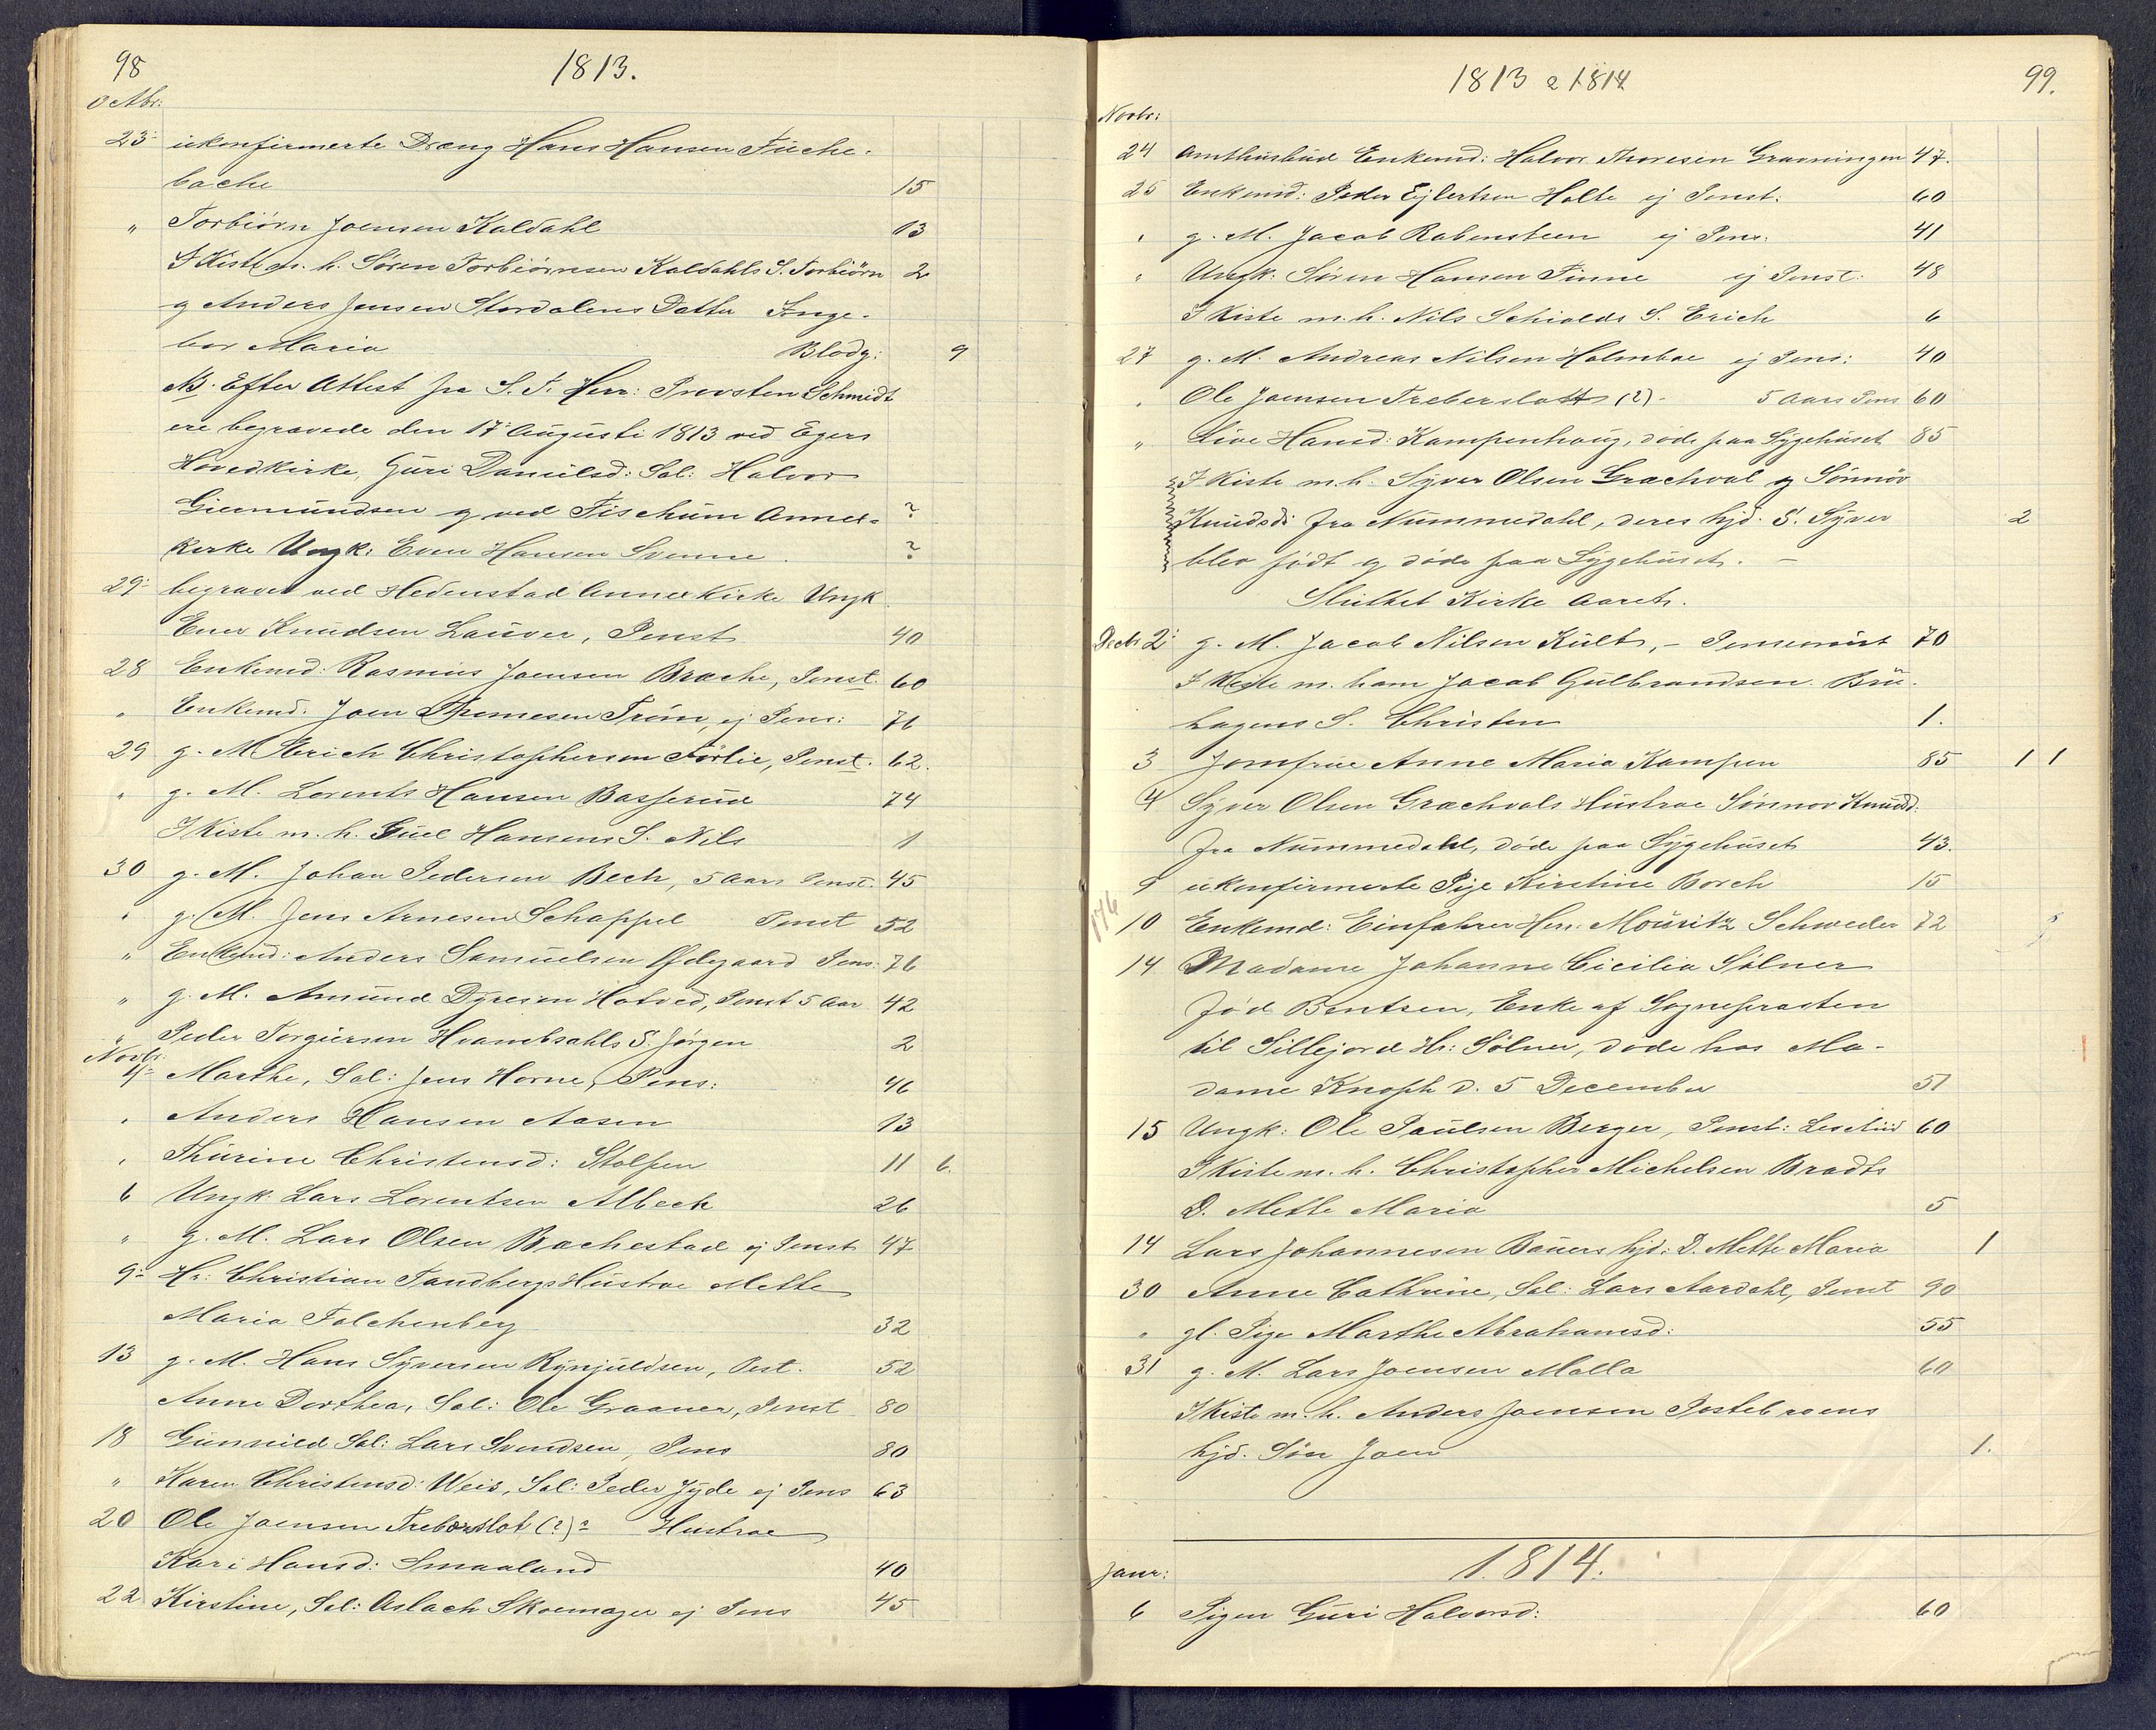 98
1813.
Octbr:
23 ukonfirmerte Dreng Hans Hansen Fuche-
bache 15
" Torbiörn Joensen Kaldahl 13
I Kiste m. h. Sören Torbiörnsen Kaldahls S. Torbiörn 2
og Anders Jensen Stordalens Datter Inge-
bor Maria Blodg: 9
NB. Efter Attest fra S. T. Herr: Provsten Schmidt
ere begravede den 17 Augusti 1813 ved Egers
Hovedkirke, Guri Danielsd: Sal: Halvor
Giermundsen og ved Fischum Annex- ?
Kirke Ungk: Even Hansen Svenne ?
29 begravet ved Hedenstad Annex Kirke Ungk.
Ener Knudsen Lauver, Penst 40
28 Enkemd: Rasmus Joensen Brache, Penst. 60
" Enkemd. Joen Tröm, ej Pens: 71
29 g. M. Erich Christophersen Förlie, Penst. 62.
" g. M. Lorents Hansen Basserud 74
I Kiste m. h. Giul Hansens S. Nils 1
30 g. M. Johan Pedersen Bech, 5 Aars Penst. 45
" g. M. Jens Arnesen Schappel Penst 52
" Enkemd: Anders Samuelsen Ødegaard Pens. 76
" g. M. Amund Dyresen Hotved, Penst 5 Aar 42
" Peder Torgiersen Hvambsahls S. Jørgen 2
Novbr.
4 Marthe, Sal: Jens Horne, Pens: 46
" Anders Hansen Aasen 13
" Thurine Christensd: Stolpen 11 6
6 Ungk. Lars Lorentsen Albech 26
" g. M. Lars Olsen Bachestad ej Penst 47
9 Hr: Christian Tandbergs Hustroe Mette
Maria Falchenberg 32
13 g. M. Hans Syversen Rynjuldsen, Pest. 52
Anne Dorthea, Sal: Ole Graaner, Penst 80
18 Gunnild Sal: Lars Svendsen, Pens 80
" Karen Christensd: Weis, Sal: Peder Jyde ej Pens 63
20 Ole Joensen Treberslot (?) Hustroe
Kari Hansd: Smaaland 40
22 Kirstine, Sal: Aslach Skoemager ej Pens 45
1813 & 1814
99.
Novbr:
24 Amthusbud Enkemd: Halvor Thoresen Gravningen 47.
25 Enkemd: Peder Ejlertsen Holte ej Penst: 60
" g. M. Jacob Rabensteen ej Pens: 41
" Ungk: Sören Hansen Pinne ej Penst: 48
I Kiste m. h. Nils Schiolds S. Erich 6
27 g. M. Andreas Nilsen Holmboe ej Pens: 40
" Ole Joensen Treberslott (?) - 5 Aars Pens 60
" Live Hansd: Kampenhaug, døde paa Sygehuset 85
I Kiste m. h. Syver Olsen Grachval og Sönnöv
Knudsd: fra Nummedahl, deres hjd. S. Syver 2
blev født og døde paa Sygehuset. -
Sluttet Kirke Aaret.
Decbr 2 g. M. Jacob Nilsen Kult, - Pensionist 70
I Kiste m. ham Jacob Gulbrandsen Bru-
hagens S. Christen 1.
3 Jomfrue Anne Maria Kampen 85 1 1
4 Syver Olsen Grachvals Hustroe Sønnov Knudsd.
fra Nummedahl, døde paa Sygehuset 43.
9 ukonfirmerte Pige Kirstine Borch 15
176
10 Enkemd: Einfahrer Herr Mouritz Schweder 72
14 Madame Johanne Cicilia Sölner
fød Bentsen, Enke af Sognepresten
til Sillejord Hr: Sölner, døde hos Ma-
dame Knoph d. 5 December 51
15 Ungk: Ole Paulsen Berger, Penst: 60
I Kiste m. h. Christopher Michelsen Bradts
D. Mette Maria 5
14 Lars Johannesen Bauers hjd: D. Mette Maria 1
30 Anne Cathrine, Sal: Lars Aardahl, Penst 90
" gl. Pige Marthe Abrahamsd: 55
31 g. M. Lars Joensen Molla 60
I Kiste m. h. Anders Joensen Postebroens
hjd. Søn Joen 1.
1814.
Janr:
6 Pigen Guri Halvorsd: 60